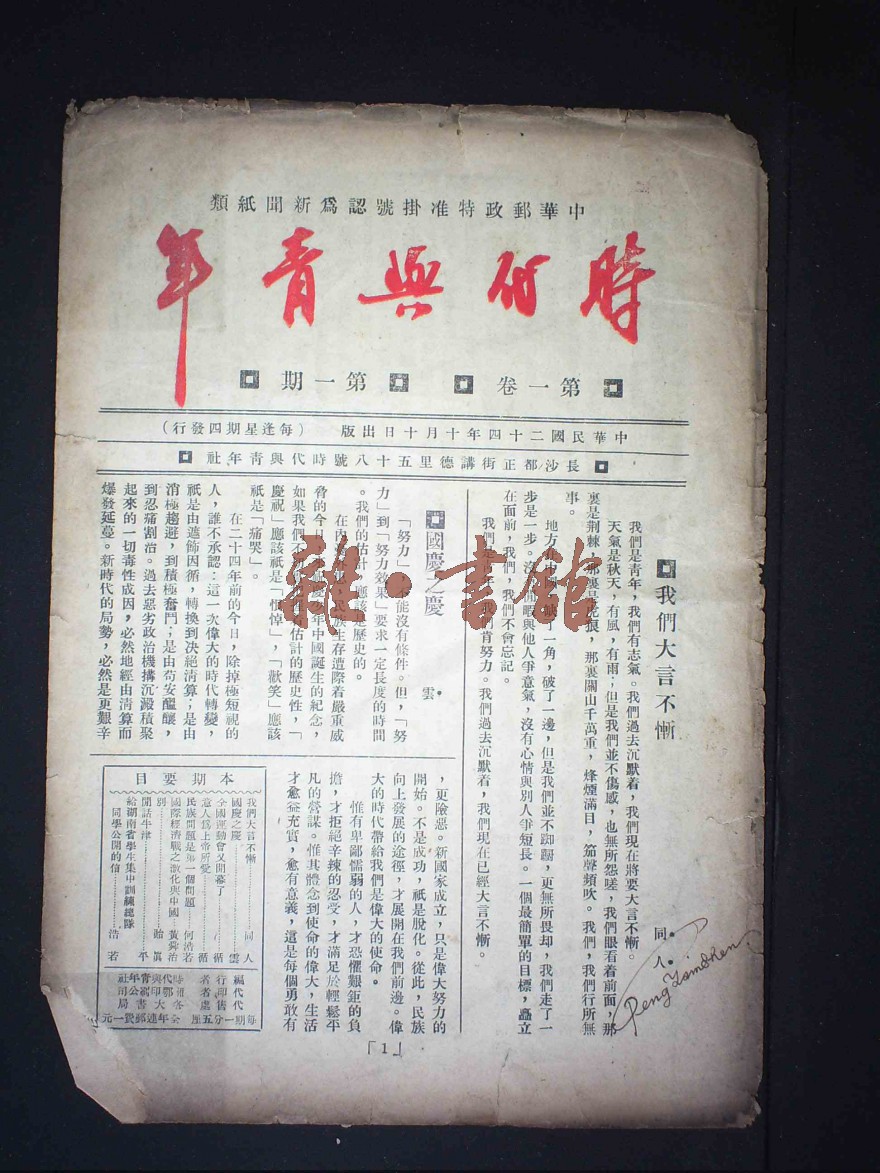 中華郵政特准掛號認爲新聞紙類
時代與青年
第一卷 第一期
中華民國二十四年十月十日出版 (每逢星期四發行)
長沙都正街講德里五十八號時代與青年社
我們大言不慚
同人
我們是青年，我們有志氣。我們過去沉默着，我們現在將要大言不慚。
天氣是秋天，有風，有雨；但是我們並不傷感，也無所怨嗟，我們眼看着前面，那
裏是荆棘，那裏是虎狼，那裏關山千萬重，烽煙滿目，笳聲頻吹。我們，我們行所無
事。
步是一步。沒
在面前，我們，我們不會忘記。
肯努力。我們過去沉默着，我們現在已經大言不慚。
Peng
雜·書館
國慶之慶
雲
「努力」不能沒有條件。但，「努
力」到「努力效果」要求一定長度的時間
。我們的估計，應該是歷史的。
脅的今日
慶祝」應該祇是「憤悼」，「歡笑」應該
祇是「痛哭」。
在二十四年前的今日，除掉極短視的
人，誰不承認：這一次偉大的時代轉變，
祇是由遮飾因循，轉換到決絕清算；是由
消極趨避，到積極奮鬥；是由苟安醞釀，
到忍痛割治。過去惡劣政治機搆沉澱積聚
起來的一切毒性成因，必然地經由清算而
爆發延蔓。新時代的局勢，必然是更艱辛
，更險惡。新國家成立，只是偉大努力的
開始。不是成功，祇是脫化。從此，民族
向上發展的途徑，才展開在我們前邊。偉
大的時代帶給我們是偉大的使命。
惟有卑鄙懦弱的人，才恐懼艱鉅的負
擔，才拒絕辛辣的忍受，才滿足於輕鬆平
凡的營謀。惟其體念到使命的偉大，生活
才愈益充實，愈有意義，這是每個勇敢有
本期要目
我們大言不慚……同人
國慶之慶……雲
全國運動會又開幕了……循
意人爲上帝所愛……循
民族問題是第一個問題……何浩若
國際經濟戰之激化與中國……黃舜治
別……貽真
閒話牛津……平
給湖南省學生集中訓練總隊
同學公開的信……浩若
「1」